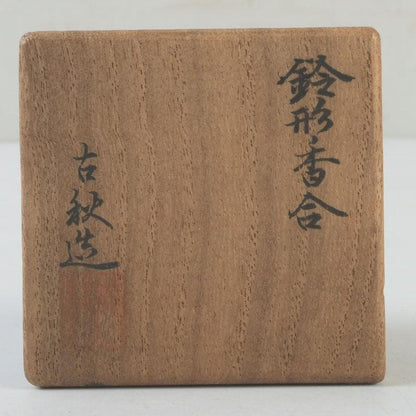 鈴形香合
古秋造